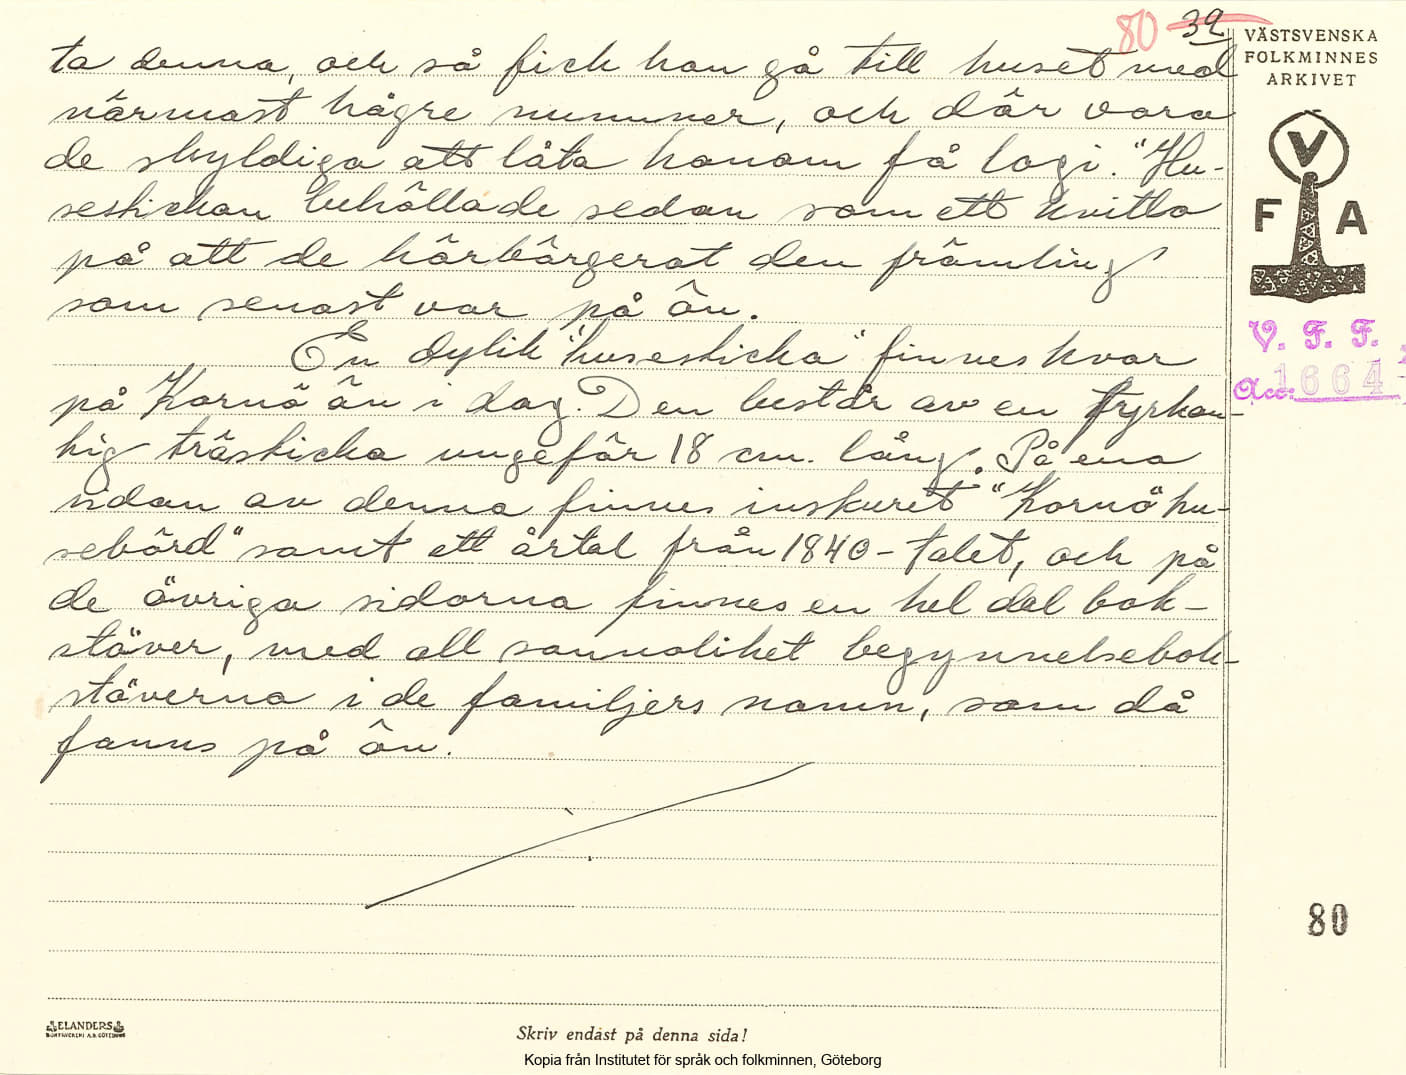 80 39
VÄSTSVENSKA
FOLKMINNES
ARKIVET
V
F A
V. F. F.
Acc: 1664
ta denna, och så fick han gå till huset med
närmast högre nummer, och där voro
de skyldiga att låta honom få logi. "Hu-
sestickan behöllo de sedan som ett kvitto
på att de härbärgerat den främling
som senast var på ön.
En dylik "husesticka" finnes kvar
på Kornö än i dag. Den består av en fyrkan-
tig trästicka ungefär 18 cm. lång. På ena
sidan av denna finnes inskuret "Kornö hu-
sebörd" samt ett årtal från 1840-talet, och på
de övriga sidorna finnes en hel del bok-
stäver, med all sannolikhet begynnelsebok-
stäverna i de familjers namn, som då
fanns på ön.
80
ELANDERS
Skriv endast på denna sida!
Kopia från Institutet för språk och folkminnen, Göteborg